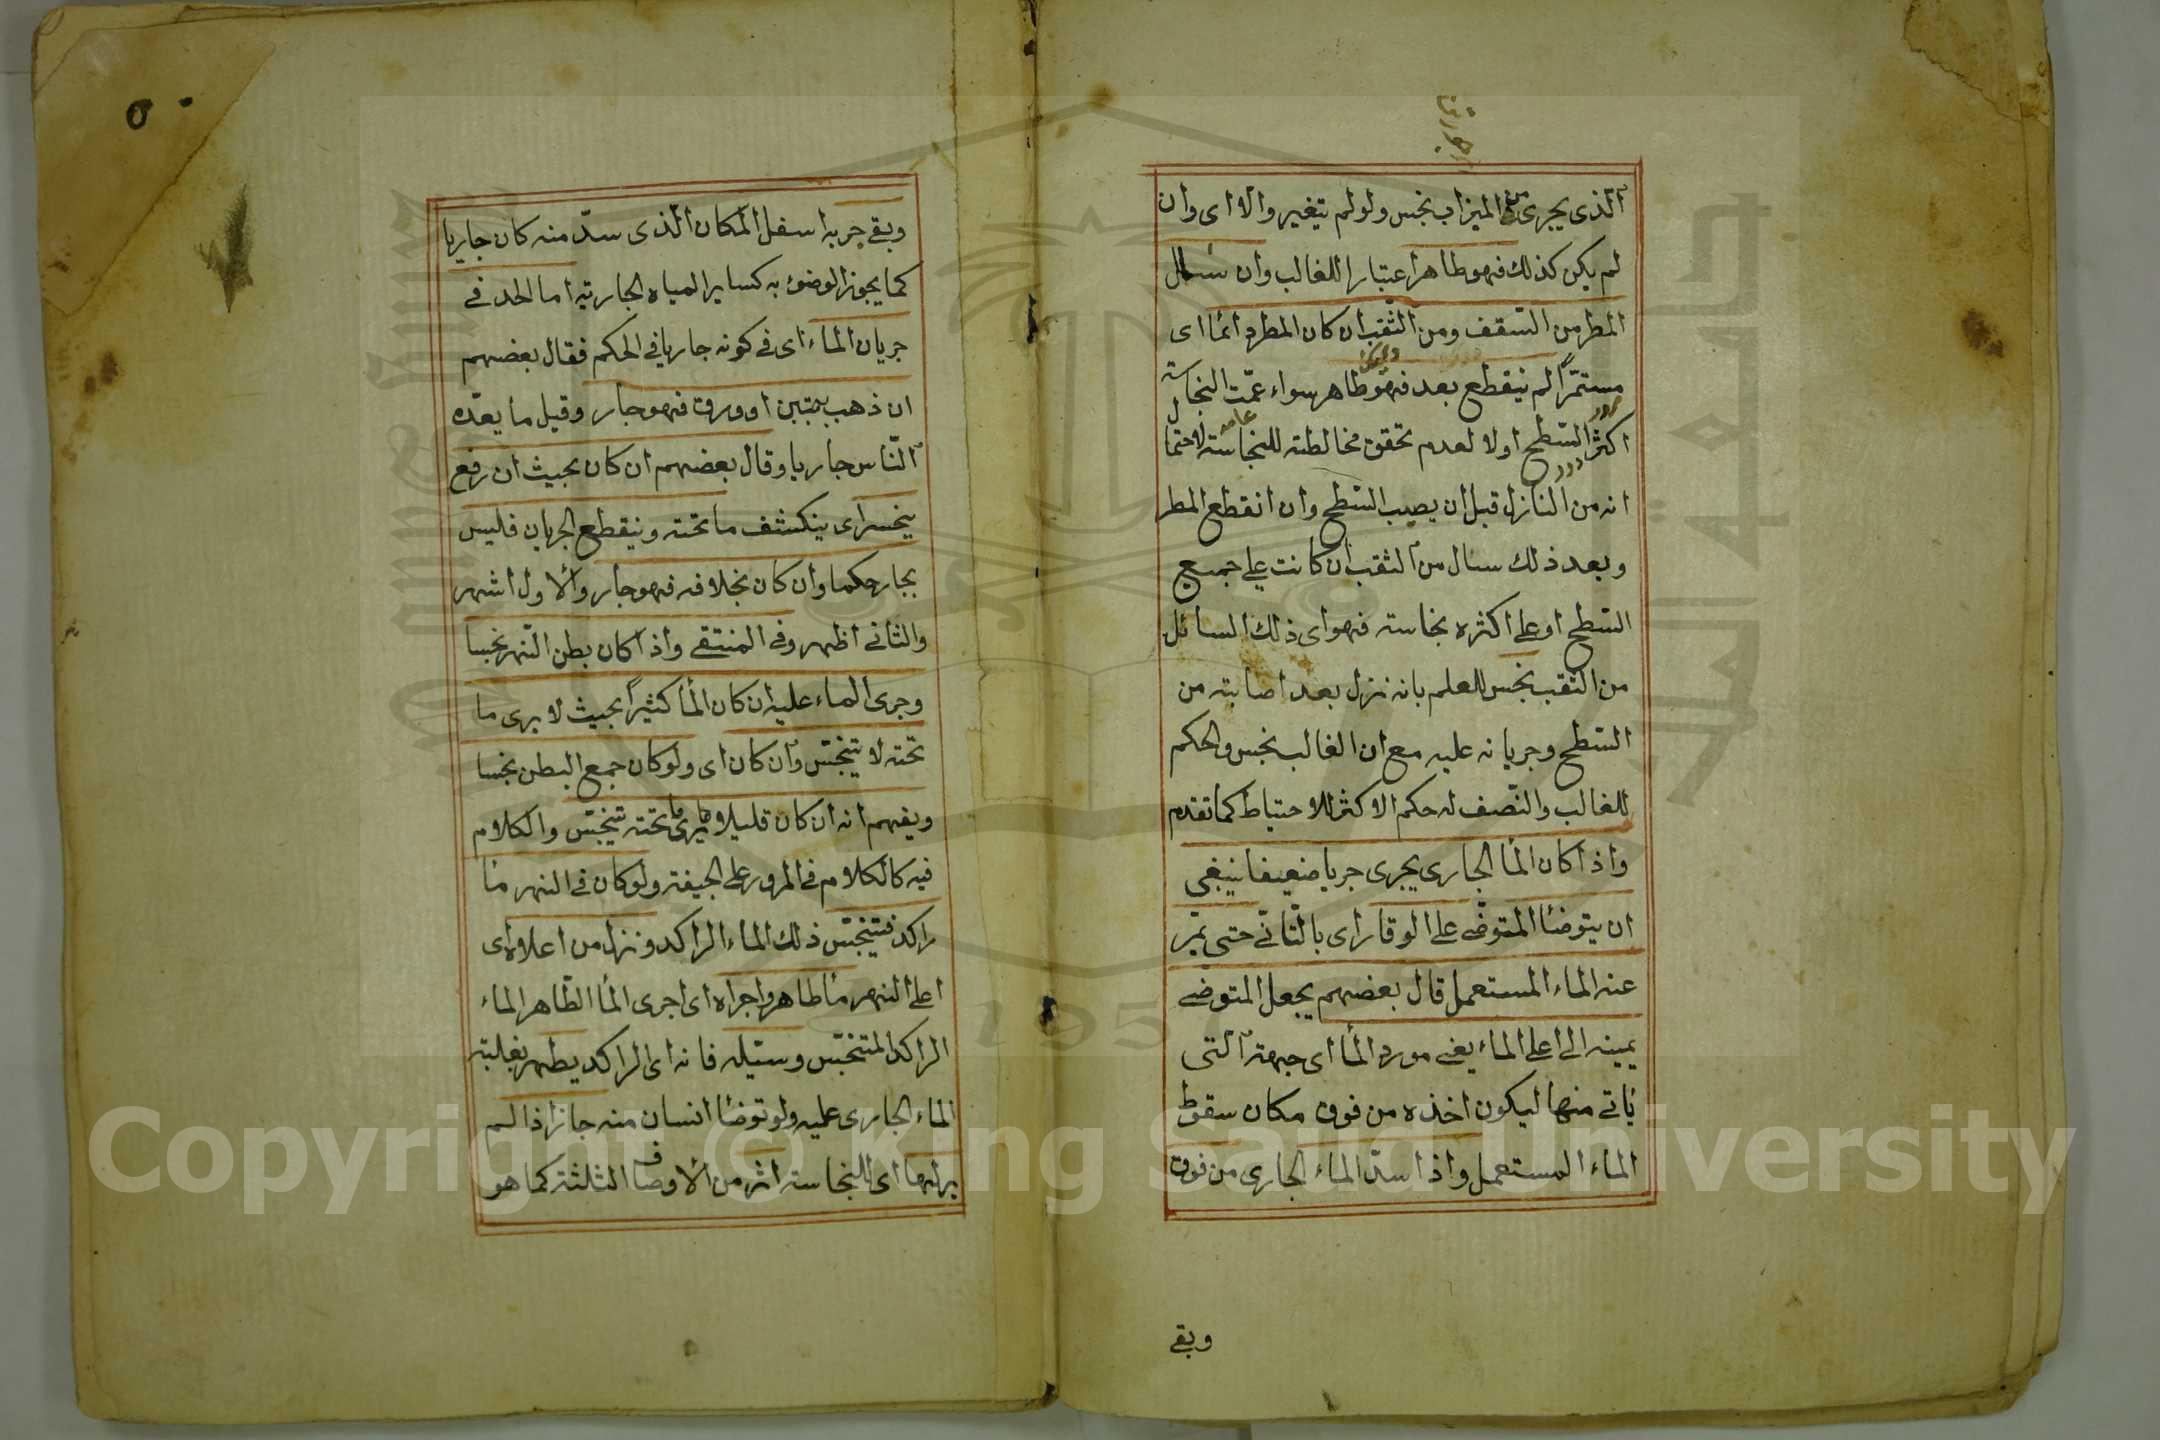 الذى يجرى من الميزاب نجس ولو لم يتغير والا اى وان
لم يكن كذلك فهو طاهر اعتبارا للغالب وان سال
المطر من السّقف ومن الثّقب ان كان المطر دائما اى
مستمرّا لم ينقطع بعد فهو طاهر سواء عمّت النجاسة
اكثر السّطح او لا لعدم تحقق مخالطته للنجاسة لاحتمال
انه من النازل قبل ان يصيب السّطح وان انقطع المطر
وبعد ذلك سال من الثقب ان كانت على جميع
السّطح او على اكثره نجاسته فهو اى ذلك السائل
من الثّقب نجس للعلم بانه نزل بعد اصابته من
السّطح وجريانه عليه مع ان الغالب نجس والحكم
للغالب والنّصف له حكم الاكثر للاحتياط كما تقدم
واذا كان الماْ الجارى يجرى جريا ضعيفا ينبغى
ان يتوضئا المتوضّى على الوقار اى بالتّانّى حتى يمّر
عنه الماء المستعمل قال بعضهم يجعل المتوضى
يمينه الى اعلى الماء يعنى مورد الماْ اى جهته الّتى
ياتى منها ليكون اخذه من فوق مكان سقوط
الماء المستعمل واذا سدّ الماء الجارى من فوق
وبقى
٥
وبقى جريه اسفل المكان الّذى سدّ منه كان جاريا
كما يجوز الوضوء به كساير المياه الجارية اما الحد فى
جريان الماء اى فى كونه جاريا فى الحكم فقال بعضهم
ان ذهب بتبن او ورق فهو جار وقيل ما يعدّه
النّاس جاريا وقال بعضهم ان كان بحيث ان رفع
ينحسر اى ينكشف ما تحته وينقطع الجريان فليس
بجار حكما وان كان بخلافه فهو جار والاول اشهر
والثانى اظهر وفى المنتقى واذا كان بطن النّهر نجسا
وجرى الماء عليه ان كان الماْ كثيرًا بحيث لا يرى ما
تحته لا يتنجّس وان كان اى ولو كان جميع البطن نجسا
ويفهم انه ان كان قليلا يرى ما تحته تنجّس والكلام
فيه كالكلام فى المرور على الجيفة ولو كان فى النهر ماْ
راكد فتنجّس ذلك الماء الراكد ونزل من اعلاه اى
اعلى النهر ماْ طاهر واجراه اى اجرى الماْ الطّاهر الماء
الراكد المتنجّس وسيّله فانه اى الراكد يطهر بغلبة
الماء الجارى عليه ولو توضئا انسان منه جاز اذا لم
ير لها اى للنجاسة اثر من الاوصاف الثلثة كما هو